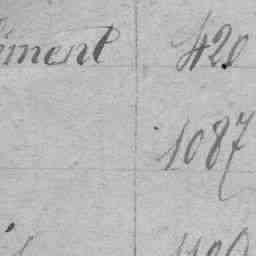 iment 420
1087